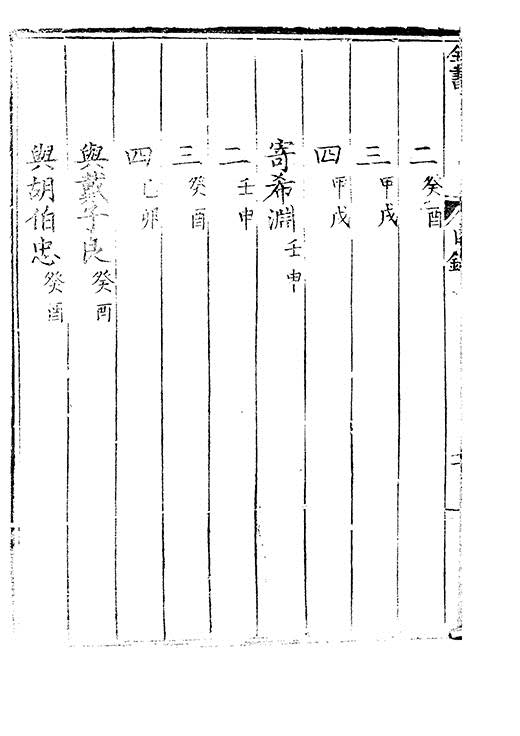 全書
目錄
二 癸酉
三 甲戌
四 甲戌
寄希淵 壬申
二 壬申
三 癸酉
四 己卯
與戴子良 癸酉
與胡伯忠 癸酉